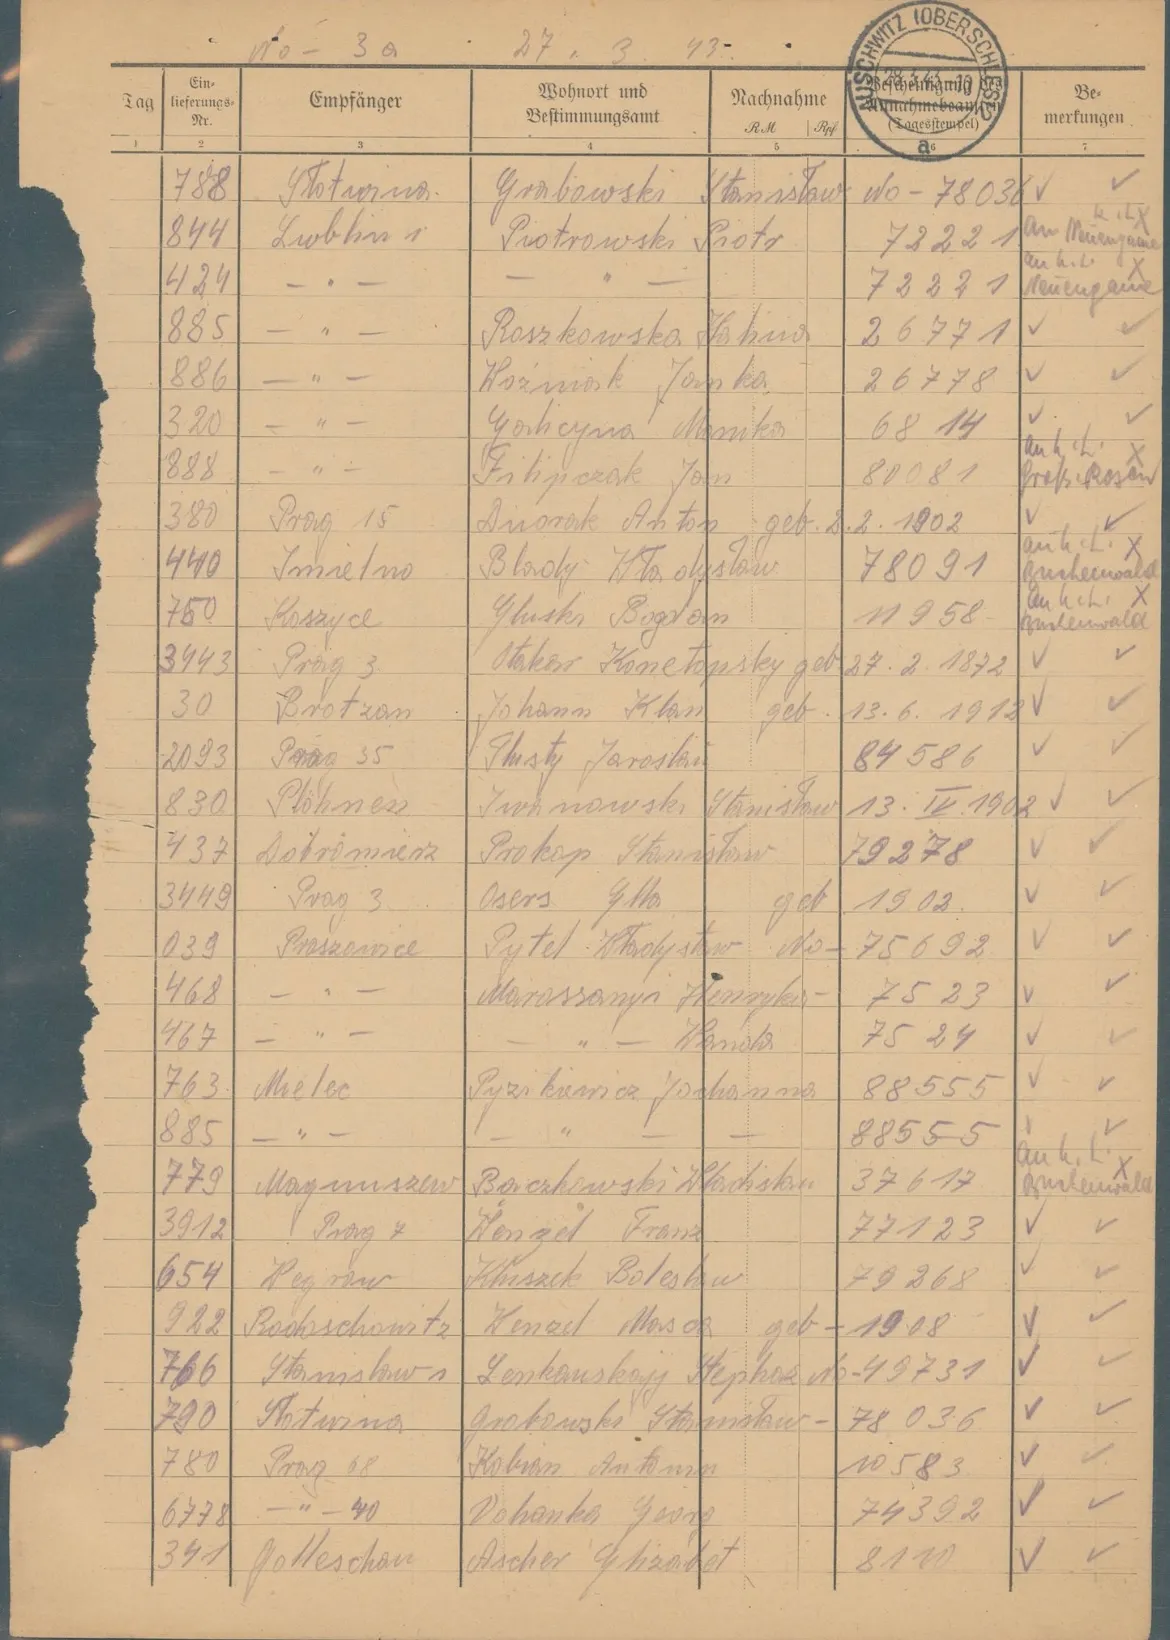 No - 3a 27. 3. 43.
AUSCHWITZ (OBERSCHLES) 28.3.43. 10 a
Tag Ein-lieferungs-Nr. Empfänger Wohnort und Bestimmungsamt Nachnahme RM Rpf Bescheinigung des Annahmebeamten (Tagesstempel) Be-merkungen
1 2 3 4 5 6 7
788 Slotwina Grabowski Stanisław No - 78036 ✓ ✓
844 Lublin 1 Piotrowski Piotr 72221 an k. L. Neuengame X
424 — " — — " — 72221 an k. L. Neuengame X
885 — " — Roszkowska Halina 26771 ✓ ✓
886 — " — Woźniak Janka 26778 ✓ ✓
320 — " — Galicyna Monika 6814 ✓ ✓
888 — " — Filipczak Jan 80081 an k. L. Groß-Rosen X
380 Prag 15 Dworak Anton geb. 2.2.1902 ✓ ✓
440 Imielno Blady Władysław 78091 an k. L. Buchenwald X
750 Koszyce Gluski Bogdan 11958 an k. L. Buchenwald X
3443 Prag 3 Otakar Konetopsky geb 27.2.1872 ✓ ✓
30 Brotzan Johann Klan geb. 13.6.1912 ✓ ✓
2093 Prag 35 Tlusty Jaroslau 84586 ✓ ✓
830 Plöhnen Iwanowski Stanisław 13. IV. 1902 ✓ ✓
437 Dobromierz Prokop Stanisław 79278 ✓ ✓
3449 Prag 3 Osers geb 1902. ✓ ✓
039 Proszowice Pytel Władysław No - 75692 ✓ ✓
468 — " — Henryka - 7523 ✓ ✓
467 — " — — " — Wanda 7524 ✓ ✓
763 Mielec Pyzikiewicz Jochanna 88555 ✓ ✓
885 — " — — " — — 88555 ✓ ✓
779 Magnuszew Baczkowski Wladislau 37617 an k. L. Buchenwald X
3912 Prag 7 Wenzel Franz 77123 ✓ ✓
654 Wegrow Kluszek Bolesław 79268 ✓ ✓
922 Radoschowitz Wenzel geb - 1908 ✓ ✓
766 Stanislaw 1 No - 49731 ✓ ✓
790 Slotwina Grabowski Stanisław - 78036 ✓ ✓
780 Prag 68 Kobian Antonin 10583 ✓ ✓
6778 — " — 40 Vohanka Georg 74392 ✓ ✓
341 Gotteschau Ascher Elizabet ✓ ✓